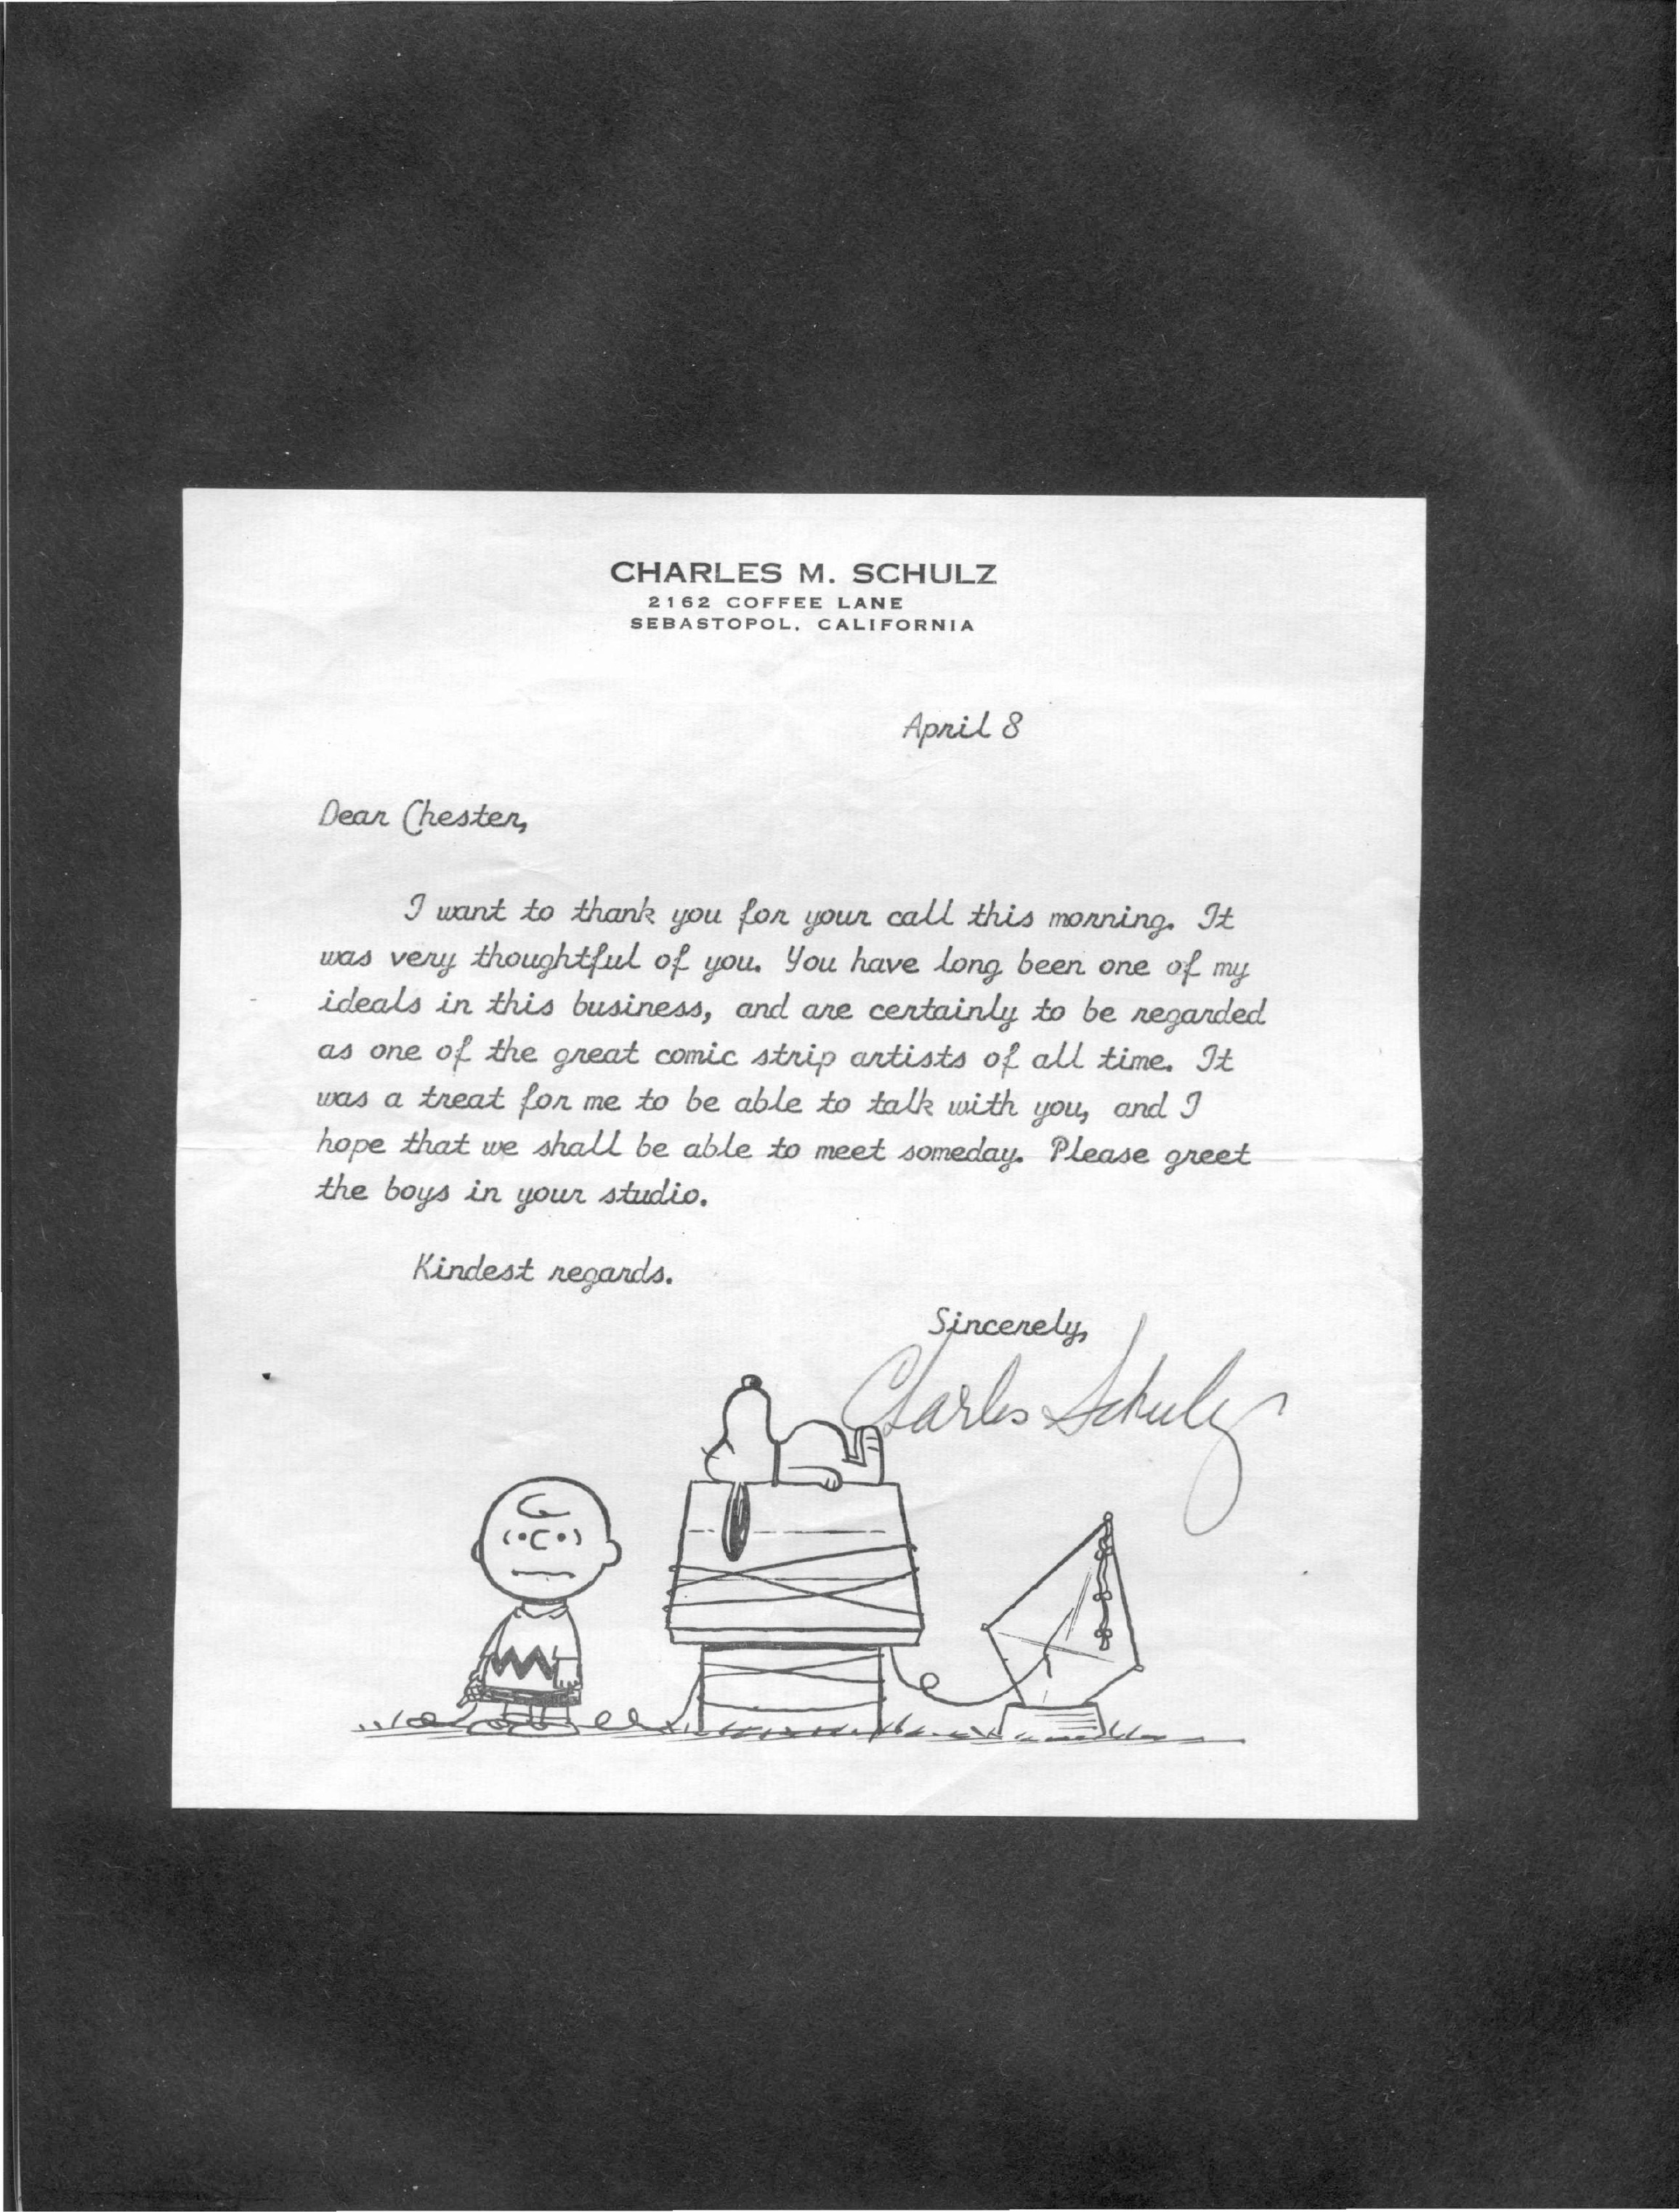 CHARLES M. SCHULZ
2162 COFFEE LANE
SEBASTOPOL, CALIFORNIA
April 8
Dear Chester,
I want to thank you for your call this morning. It
was very thoughtful of you. You have long been one of my
ideals in this business, and are certainly to be regarded
as one of the great comic strip artists of all time. It
was a treat for me to be able to talk with you, and I
hope that we shall be able to meet someday. Please greet
the boys in your studio.
Kindest regards.
Sincerely,
Charles Schulz